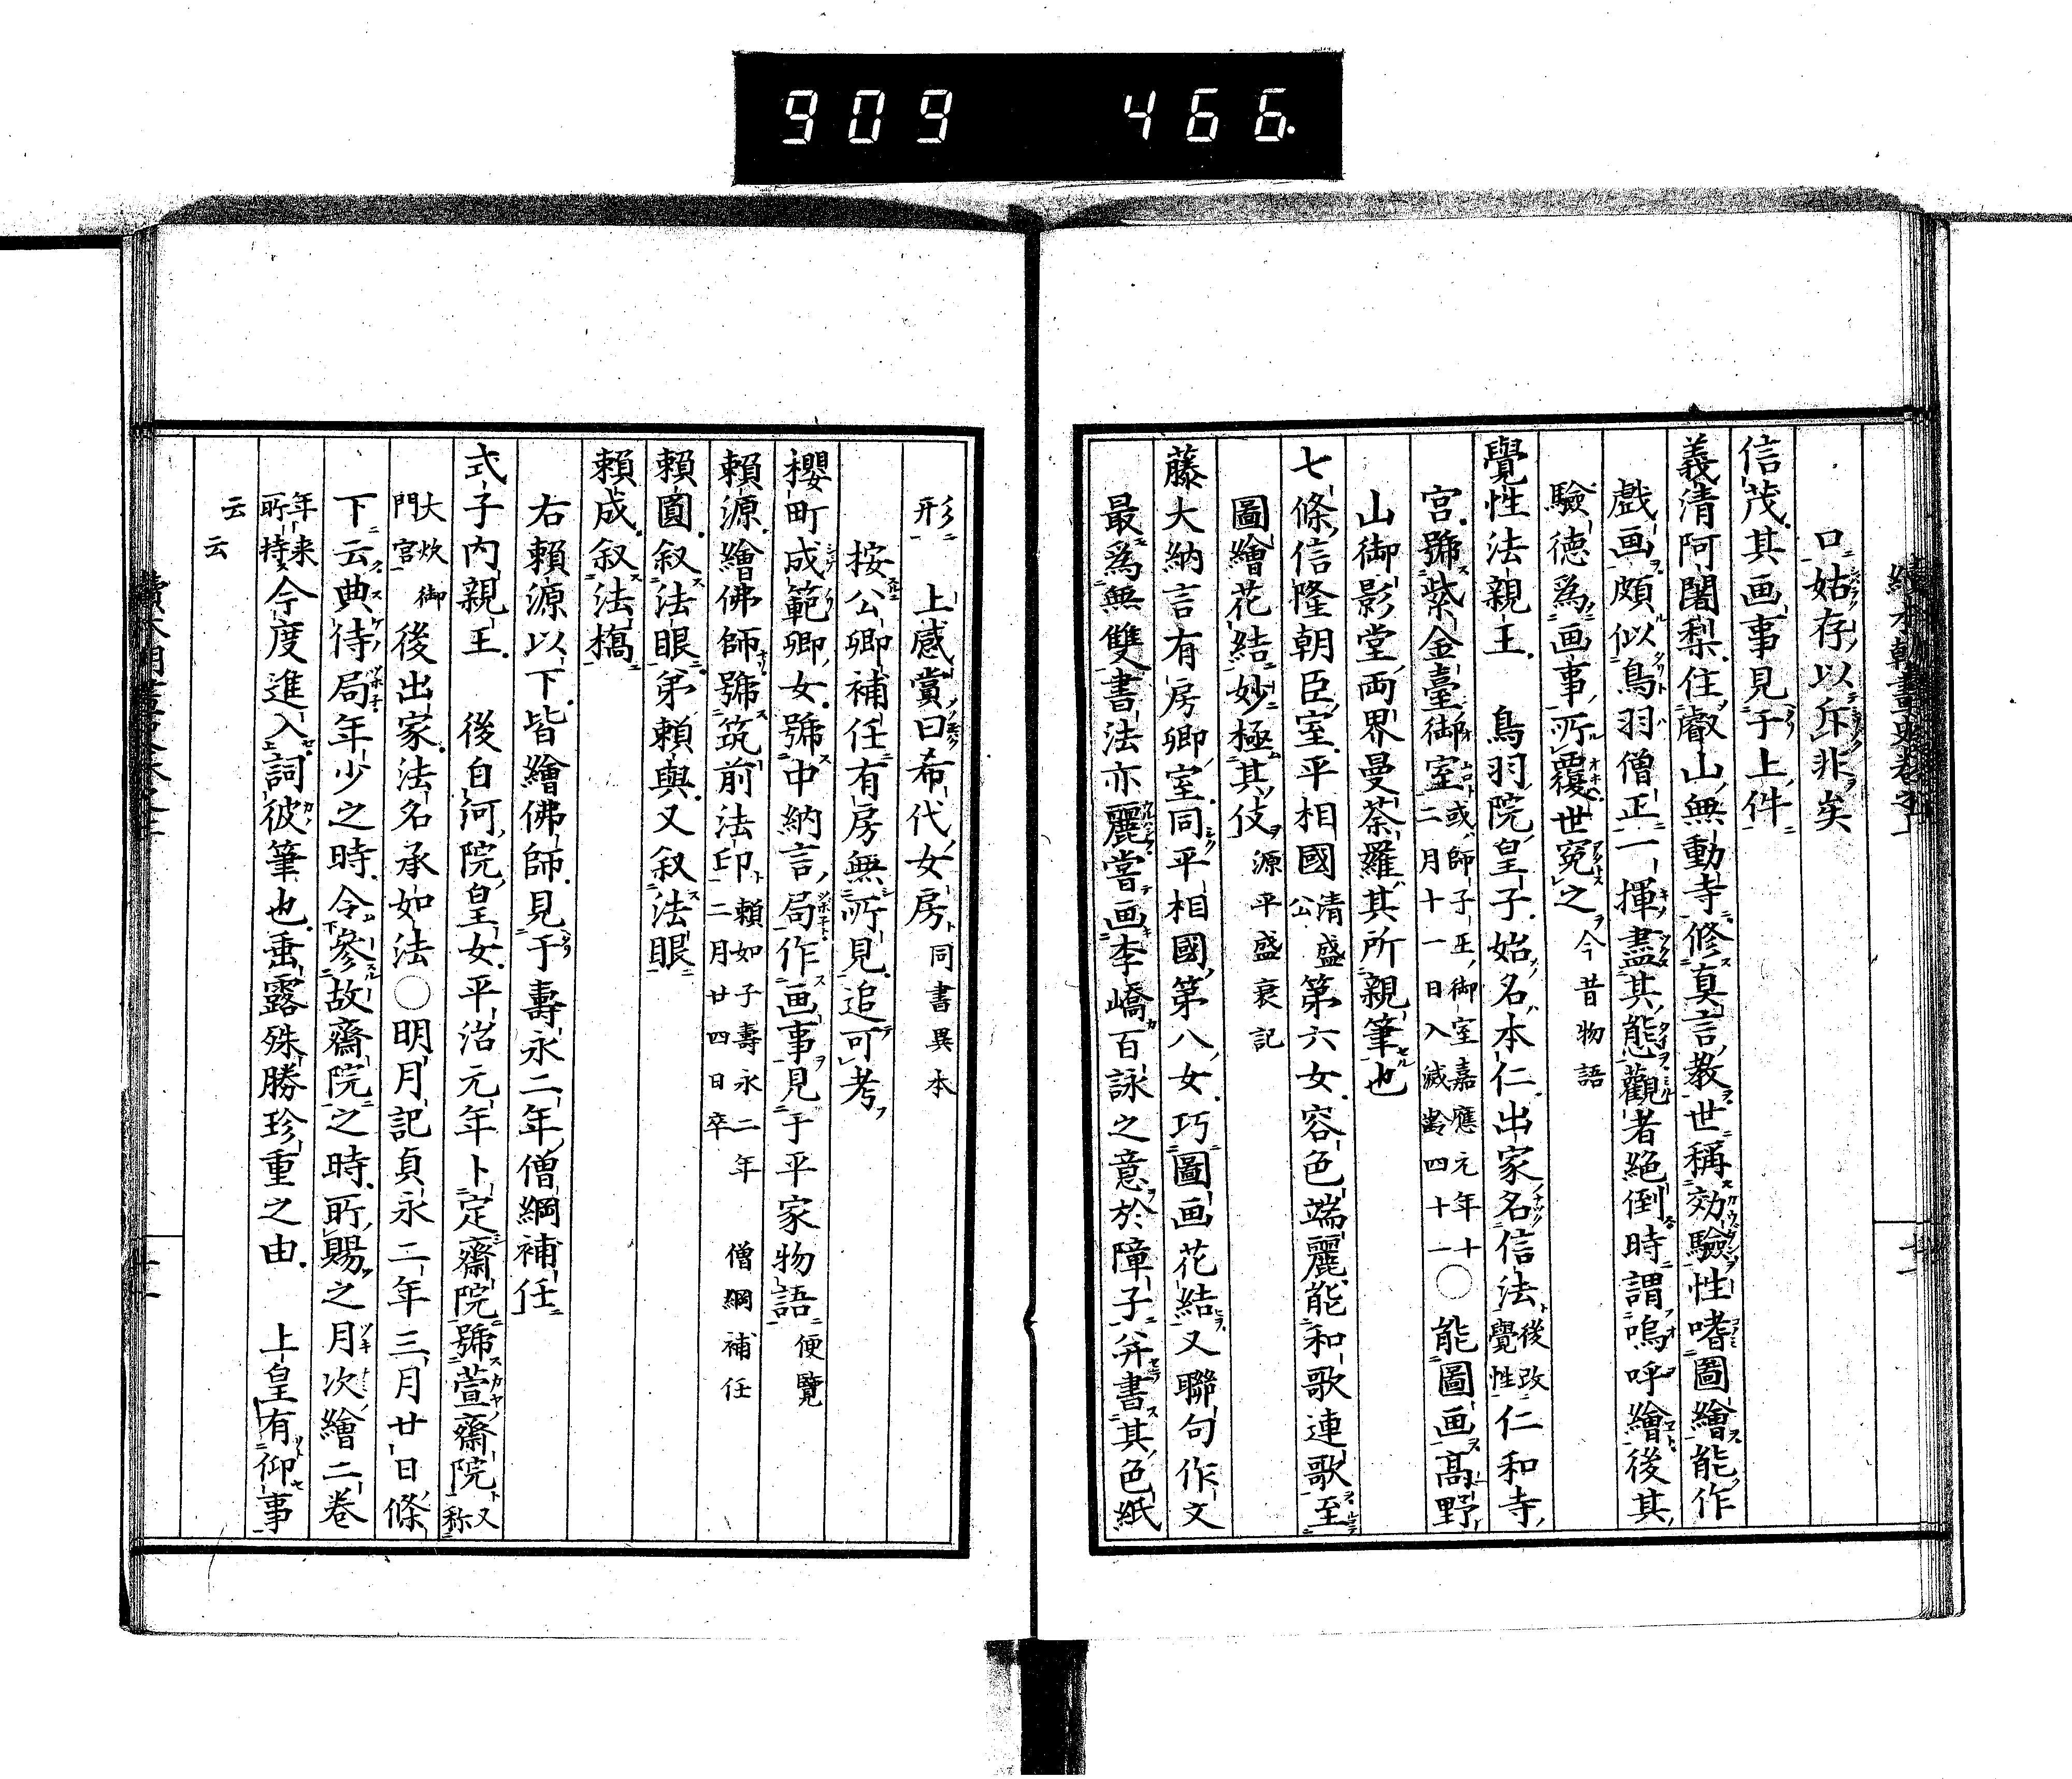 909 466
口姑存以斥非矣
信茂其画事見于上件
義清阿闍梨住睿山無動寺修真言教世稱効驗性嗜圖繪能作
戲画頗似鳥羽僧正一揮盡其態觀者絕倒時謂嗚呼繪後其
驗德爲画事所覆世寃之今昔物語
覺性法親王 鳥羽院皇子始名本仁出家名信法後改覺性仁和寺
宮號紫金臺御室或師子王御室嘉應元年十二月十一日入滅齡四十一〇能圖画高野
山御影堂両界曼荼羅其所親筆也
七條信隆朝臣室平相國清盛公第六女容色端麗能和歌連歌至
圖繪花結妙極其伎源平盛衰記
藤大納言有房卿室同平相國第八女巧圖画花結又聯句作文
最爲無雙書法亦麗嘗画李嶠百詠之意於障子并書其色紙
形 上感賞曰希代女房同書異本
按公卿補任有房無所見追可考
櫻町成範卿女號中納言局作画事見于平家物語便覽
賴源繪佛師號筑前法印賴如子壽永二年二月廿四日卒 僧綱補任
賴圓叙法眼弟賴與又叙法眼
賴成叙法橋
右賴源以下皆繪佛師見于壽永二年僧綱補任
式子内親王 後白河院皇女平治元年卜定齋院號萱齋院又称
大炊御門宮後出家法名承如法〇明月記貞永二年三月廿日條
下云典侍局年少之時令參故齋院之時所賜之月次繪二卷
年来所持今度進入詞彼筆也垂露殊勝珍重之由 上皇有仰事
云云